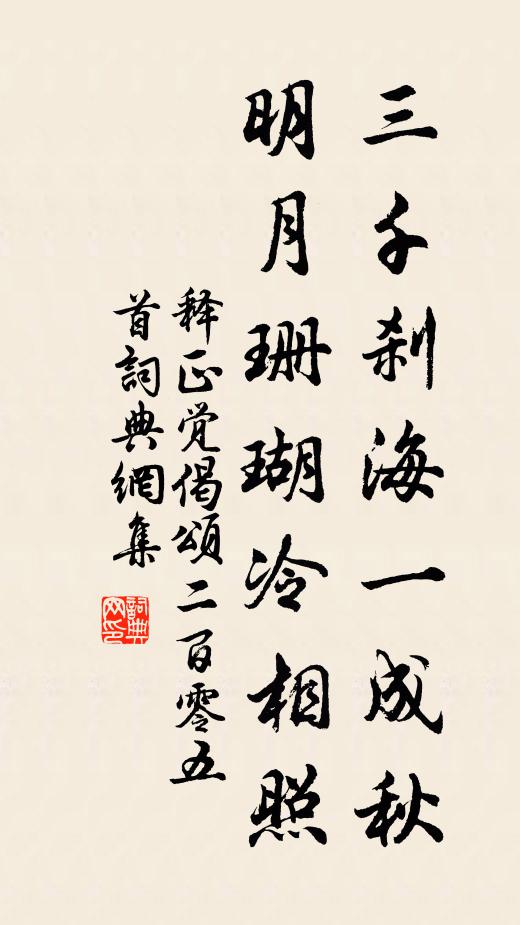 三千刹海一成秋
明月珊瑚冷相照
释正觉偈颂二百零五
首詞典網集
詞典
网印